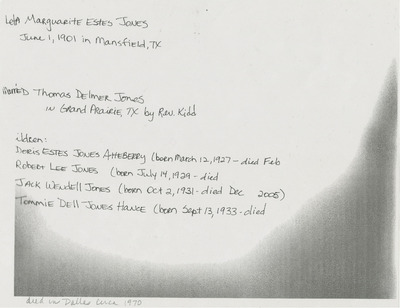 Lela Marguarite Estes Jones
June 1, 1901 in Mansfield, TX
married Thomas Delmer Jones
in Grand Prairie, TX by Rev. Kidd
ildren:
Doris Estes Jones Atteberry (born March 12, 1927 - died Feb
Robert Lee Jones (born July 14, 1929 - died
Jack Wendell Jones (born Oct 2, 1931 - died Dec 2005)
Tommie Dell Jones Hawke (born Sept 13, 1933 - died
died in Dallas circa 1970